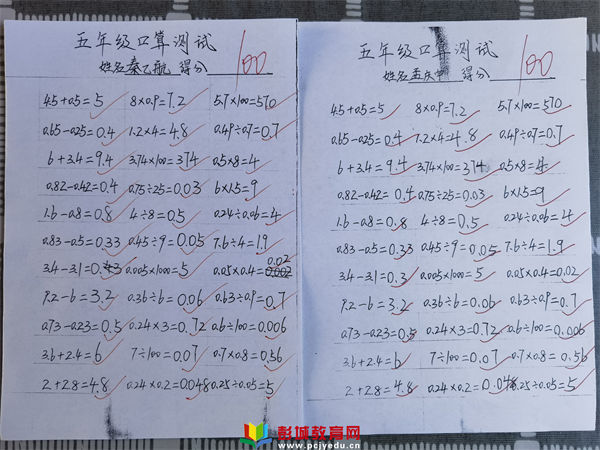 五年级口算测试
100
姓名秦乙航 得分
4.5+0.5=5 8×0.9=7.2 5.7×100=570
0.65-0.25=0.4 1.2×4=4.8 0.49÷0.7=0.7
6+3.4=9.4 3.74×100=374 0.5×8=4
0.82-0.42=0.4 0.75÷25=0.03 6×1.5=9
1.6-0.8=0.8 4÷8=0.5 0.24÷0.06=4
0.83-0.5=0.33 0.45÷9=0.05 7.6÷4=1.9
3.4-3.1=0.3 0.005×1000=5 0.05×0.4=0.02
9.2-6=3.2 0.36÷6=0.06 0.63÷0.9=0.7
0.73-0.23=0.5 0.24×3=0.72 0.6÷100=0.006
3.6+2.4=6 7÷100=0.07 0.7×0.8=0.56
2+2.8=4.8 0.24×0.2=0.048 0.25÷0.05=5
五年级口算测试
100
姓名 得分
4.5+0.5=5 8×0.9=7.2 5.7×100=570
0.65-0.25=0.4 1.2×4=4.8 0.49÷0.7=0.7
6+3.4=9.4 3.74×100=374 0.5×8=4
0.82-0.42=0.4 0.75÷25=0.03 6×1.5=9
1.6-0.8=0.8 4÷8=0.5 0.24÷0.06=4
0.83-0.5=0.33 0.45÷9=0.05 7.6÷4=1.9
3.4-3.1=0.3 0.005×1000=5 0.05×0.4=0.02
9.2-6=3.2 0.36÷6=0.06 0.63÷0.9=0.7
0.73-0.23=0.5 0.24×3=0.72 0.6÷100=0.006
3.6+2.4=6 7÷100=0.07 0.7×0.8=0.56
2+2.8=4.8 0.24×0.2=0.048 0.25÷0.05=5
彭城教育网
www.pcjyedu.cn